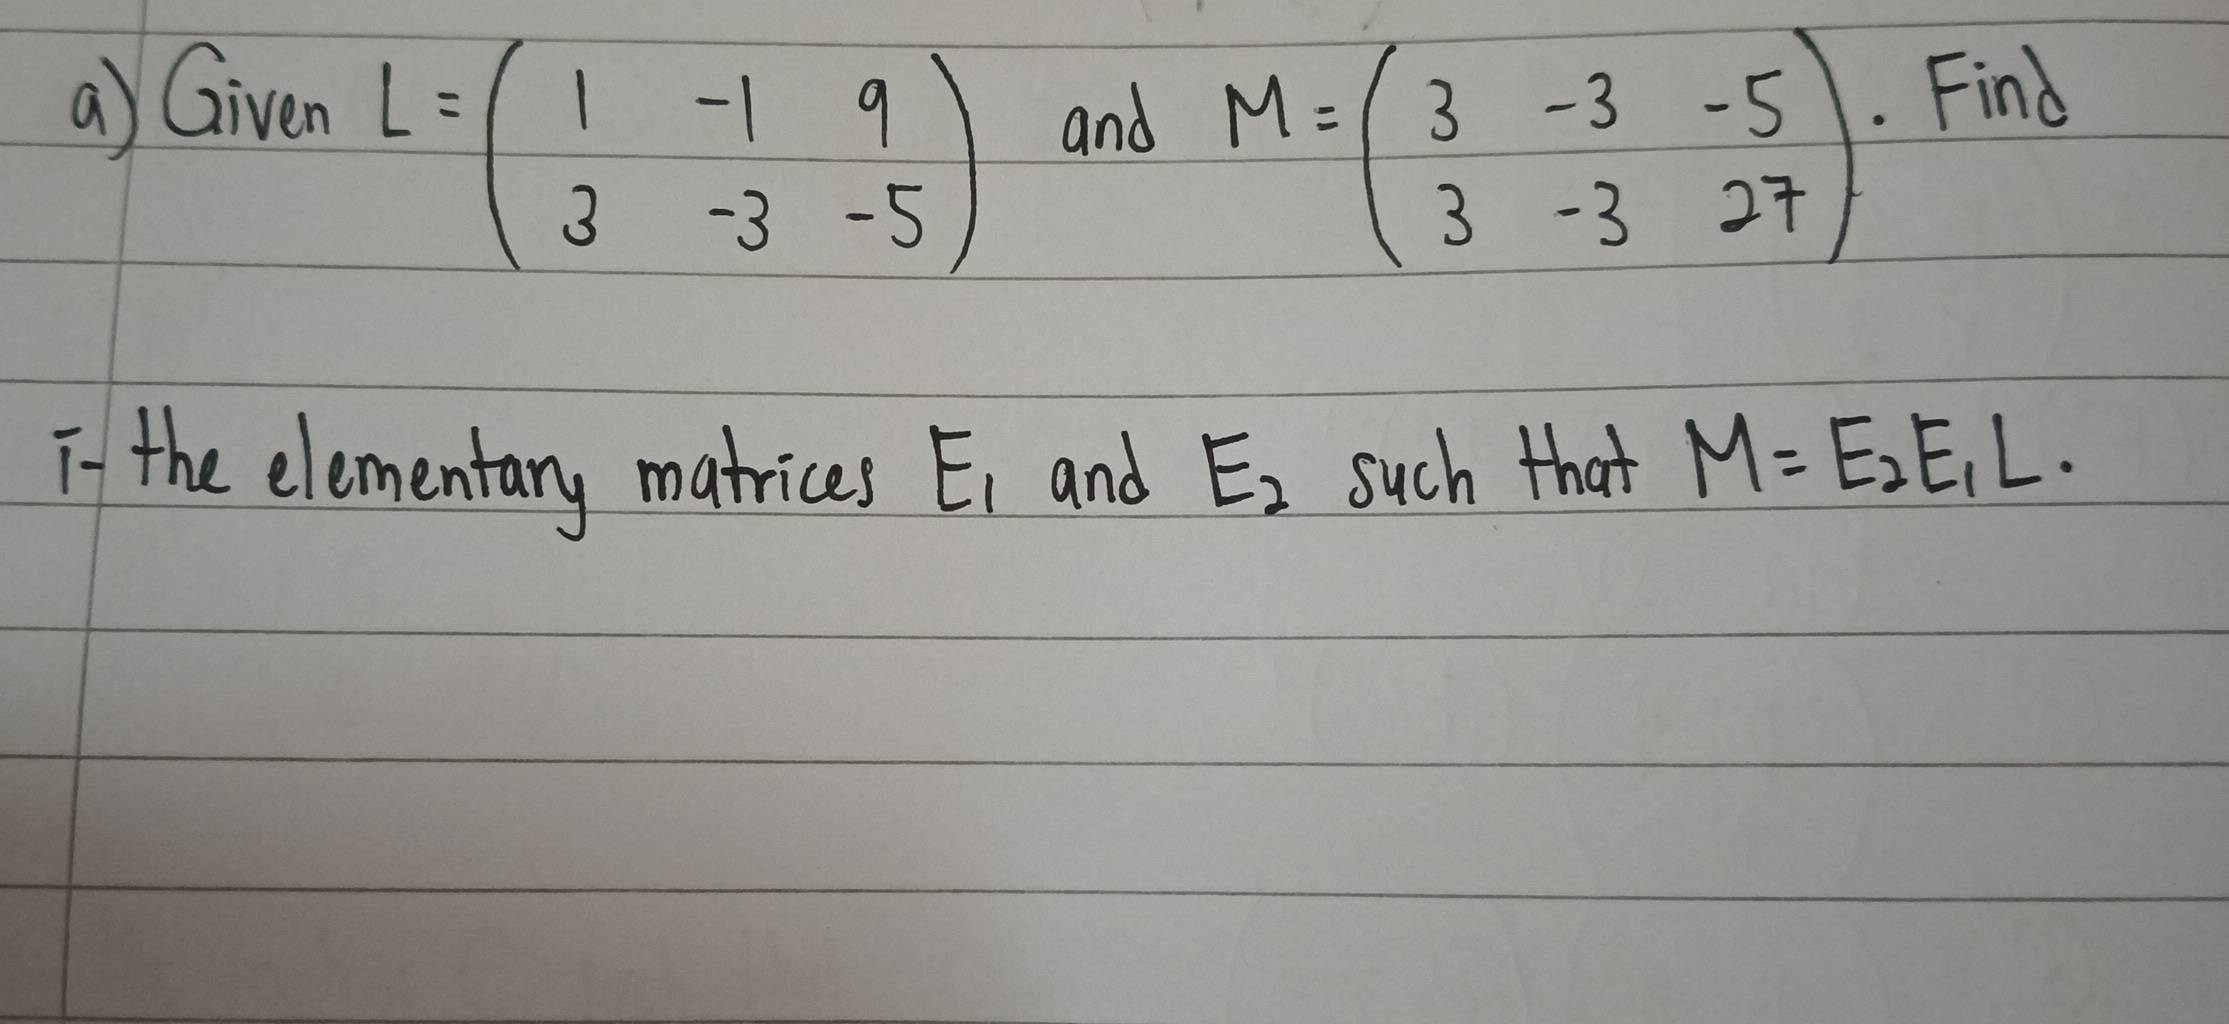 a) Given L = ( 1 -1 9 ) and M = ( 3 -3 -5 ). Find
( 3 -3 -5 ) ( 3 -3 27 )
i- the elementary matrices E₁ and E₂ such that M = E₂E₁L.